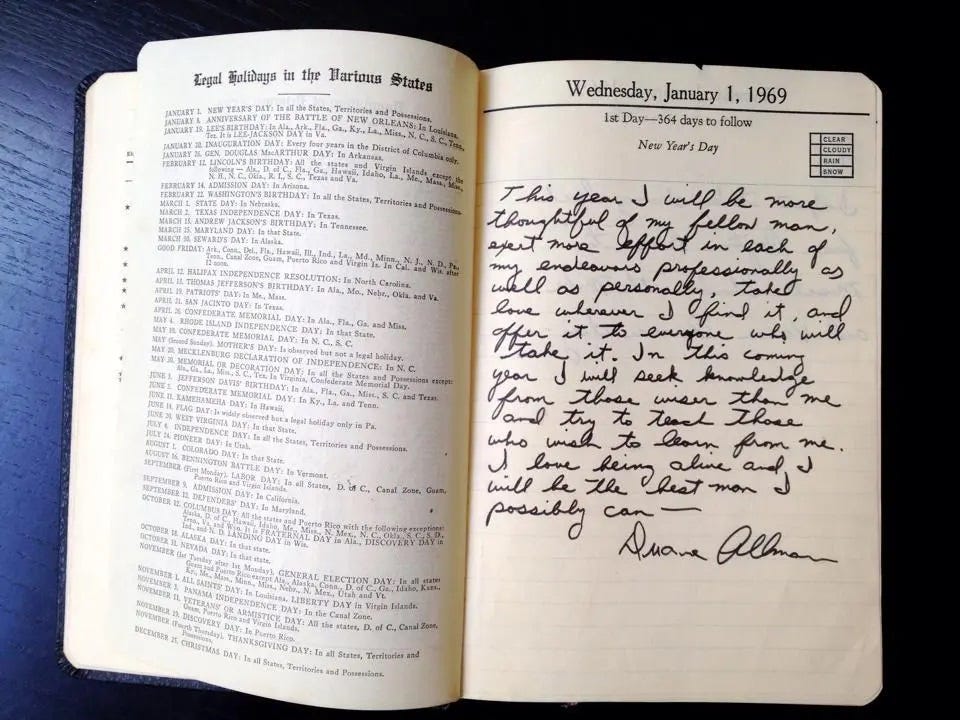 Legal Holidays in the Various States
JANUARY 1. NEW YEAR'S DAY: In all the States, Territories and Possessions.
JANUARY 8. ANNIVERSARY OF THE BATTLE OF NEW ORLEANS: In Louisiana.
JANUARY 19. LEE'S BIRTHDAY: In Ala., Ark., Fla., Ga., Ky., La., Miss., N. C., S. C., Tenn.,
Tex. It is LEE-JACKSON DAY in Va.
JANUARY 20. INAUGURATION DAY: Every four years in the District of Columbia only.
JANUARY 26. GEN. DOUGLAS MacARTHUR DAY: In Arkansas.
FEBRUARY 12. LINCOLN'S BIRTHDAY: All the states and Virgin Islands except the
following — Ala., D. of C., Fla., Ga., Hawaii, Idaho, La., Me., Mass., Miss.,
N. H., N. C., Okla., R. I., S. C., Texas and Va.
FEBRUARY 14. ADMISSION DAY: In Arizona.
FEBRUARY 22. WASHINGTON'S BIRTHDAY: In all the States, Territories and Possessions.
MARCH 1. STATE DAY: In Nebraska.
MARCH 2. TEXAS INDEPENDENCE DAY: In Texas.
MARCH 15. ANDREW JACKSON'S BIRTHDAY: In Tennessee.
MARCH 25. MARYLAND DAY: In that State.
MARCH 30. SEWARD'S DAY: In Alaska.
GOOD FRIDAY: Ark., Conn., Del., Fla., Hawaii, Ill., Ind., La., Md., Minn., N. J., N. D., Pa.,
Tenn., Canal Zone, Guam, Puerto Rico and Virgin Is. In Cal. and Wis. after
12 noon.
APRIL 12. HALIFAX INDEPENDENCE RESOLUTION: In North Carolina.
APRIL 13. THOMAS JEFFERSON'S BIRTHDAY: In Ala., Mo., Nebr., Okla. and Va.
APRIL 19. PATRIOTS' DAY: In Me., Mass.
APRIL 21. SAN JACINTO DAY: In Texas.
APRIL 26. CONFEDERATE MEMORIAL DAY: In Ala., Fla., Ga. and Miss.
MAY 4. RHODE ISLAND INDEPENDENCE DAY: In that State.
MAY 10. CONFEDERATE MEMORIAL DAY: In N. C., S. C.
MAY (Second Sunday). MOTHER'S DAY: Is observed but not a legal holiday.
MAY 20. MECKLENBURG DECLARATION OF INDEPENDENCE: In N. C.
MAY 30. MEMORIAL OR DECORATION DAY: In all the States and Possessions except:
Ala., Ga., La., Miss., S. C., Tex. In Virginia, Confederate Memorial Day.
JUNE 3. JEFFERSON DAVIS' BIRTHDAY: In Ala., Fla., Ga., Miss., S. C. and Texas.
JUNE 3. CONFEDERATE MEMORIAL DAY: In Ky., La. and Tenn.
JUNE 11. KAMEHAMEHA DAY: In Hawaii.
JUNE 14. FLAG DAY: Is widely observed but a legal holiday only in Pa.
JUNE 20. WEST VIRGINIA DAY: In that State.
JULY 4. INDEPENDENCE DAY: In all the States, Territories and Possessions.
JULY 24. PIONEER DAY: In Utah.
AUGUST 1. COLORADO DAY: In that State.
AUGUST 16. BENNINGTON BATTLE DAY: In Vermont.
SEPTEMBER (First Monday). LABOR DAY: In all States, D. of C., Canal Zone, Guam,
Puerto Rico and Virgin Islands.
SEPTEMBER 9. ADMISSION DAY: In California.
SEPTEMBER 12. DEFENDERS' DAY: In Maryland.
OCTOBER 12. COLUMBUS DAY: All the states and Puerto Rico with the following exceptions:
Alaska, D. of C., Hawaii, Idaho, Me., Miss., N. Mex., N. C., Okla., S. C., S. D.,
Tenn., Va. and Wyo. It is FRATERNAL DAY in Ala., DISCOVERY DAY in
Ind., and N. D. LANDING DAY in Wis.
OCTOBER 18. ALASKA DAY: In that state.
OCTOBER 31. NEVADA DAY: In that state.
NOVEMBER (1st Tuesday after 1st Monday). GENERAL ELECTION DAY: In all states
Guam and Puerto Rico except Ala., Alaska, Conn., D. of C., Ga., Idaho, Kans.,
Ky., Me., Mass., Minn., Miss., Nebr., N. Mex., Utah and Vt.
NOVEMBER 1. ALL SAINTS' DAY: In Louisiana. LIBERTY DAY in Virgin Islands.
NOVEMBER 3. PANAMA INDEPENDENCE DAY: In the Canal Zone.
NOVEMBER 11. VETERANS' OR ARMISTICE DAY: All the states, D. of C., Canal Zone,
Guam, Puerto Rico and Virgin Islands.
NOVEMBER 19. DISCOVERY DAY: In Puerto Rico.
NOVEMBER (Fourth Thursday). THANKSGIVING DAY: In all States, Territories and
Possessions.
DECEMBER 25. CHRISTMAS DAY: In all States, Territories and Possessions.
Wednesday, January 1, 1969
1st Day—364 days to follow
New Year's Day
CLEAR
CLOUDY
RAIN
SNOW
This year I will be more
thoughtful of my fellow man,
exert more effort in each of
my endeavors professionally as
well as personally, take
love wherever I find it, and
offer it to everyone who will
take it. In this coming
year I will seek knowledge
from those wiser than me
and try to teach those
who wish to learn from me.
I love being alive and I
will be the best man I
possibly can —
Duane Allman